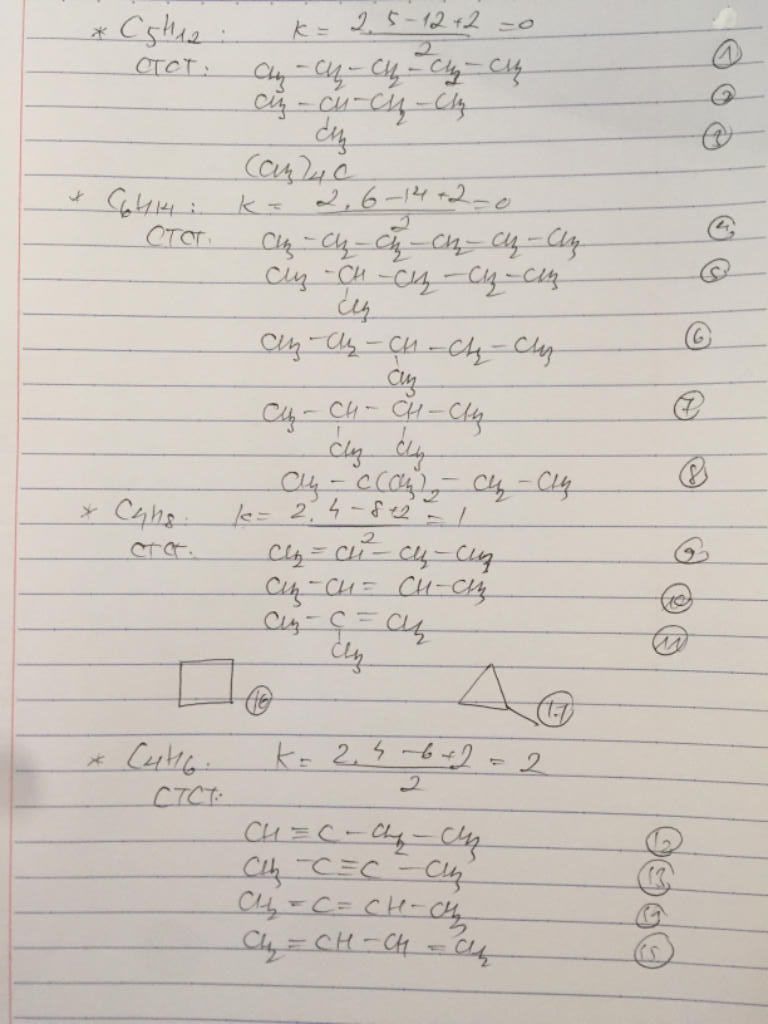 * C5H12: k = (2.5 - 12 + 2)/2 = 0
CTCT: CH3 - CH2 - CH2 - CH2 - CH3 ①
CH3 - CH - CH2 - CH3 ②
CH3 ③
(CH3)4C
* C6H14: k = (2.6 - 14 + 2)/2 = 0
CTCT: CH3 - CH2 - CH2 - CH2 - CH2 - CH3 ④
CH3 - CH - CH2 - CH2 - CH3 ⑤
CH3
CH3 - CH2 - CH - CH2 - CH3 ⑥
CH3
CH3 - CH - CH - CH3 ⑦
CH3 CH3
CH3 - C(CH3)2 - CH2 - CH3 ⑧
* C4H8: k = (2.4 - 8 + 2)/2 = 1
CTCT: CH2 = CH - CH2 - CH3 ⑨
CH3 - CH = CH - CH3 ⑩
CH3 - C = CH2 ⑪
CH3
⑯ ⑰
* C4H6: k = (2.4 - 6 + 2)/2 = 2
CTCT:
CH ≡ C - CH2 - CH3 ⑫
CH3 - C ≡ C - CH3 ⑬
CH2 = C = CH - CH3 ⑭
CH2 = CH - CH = CH2 ⑮